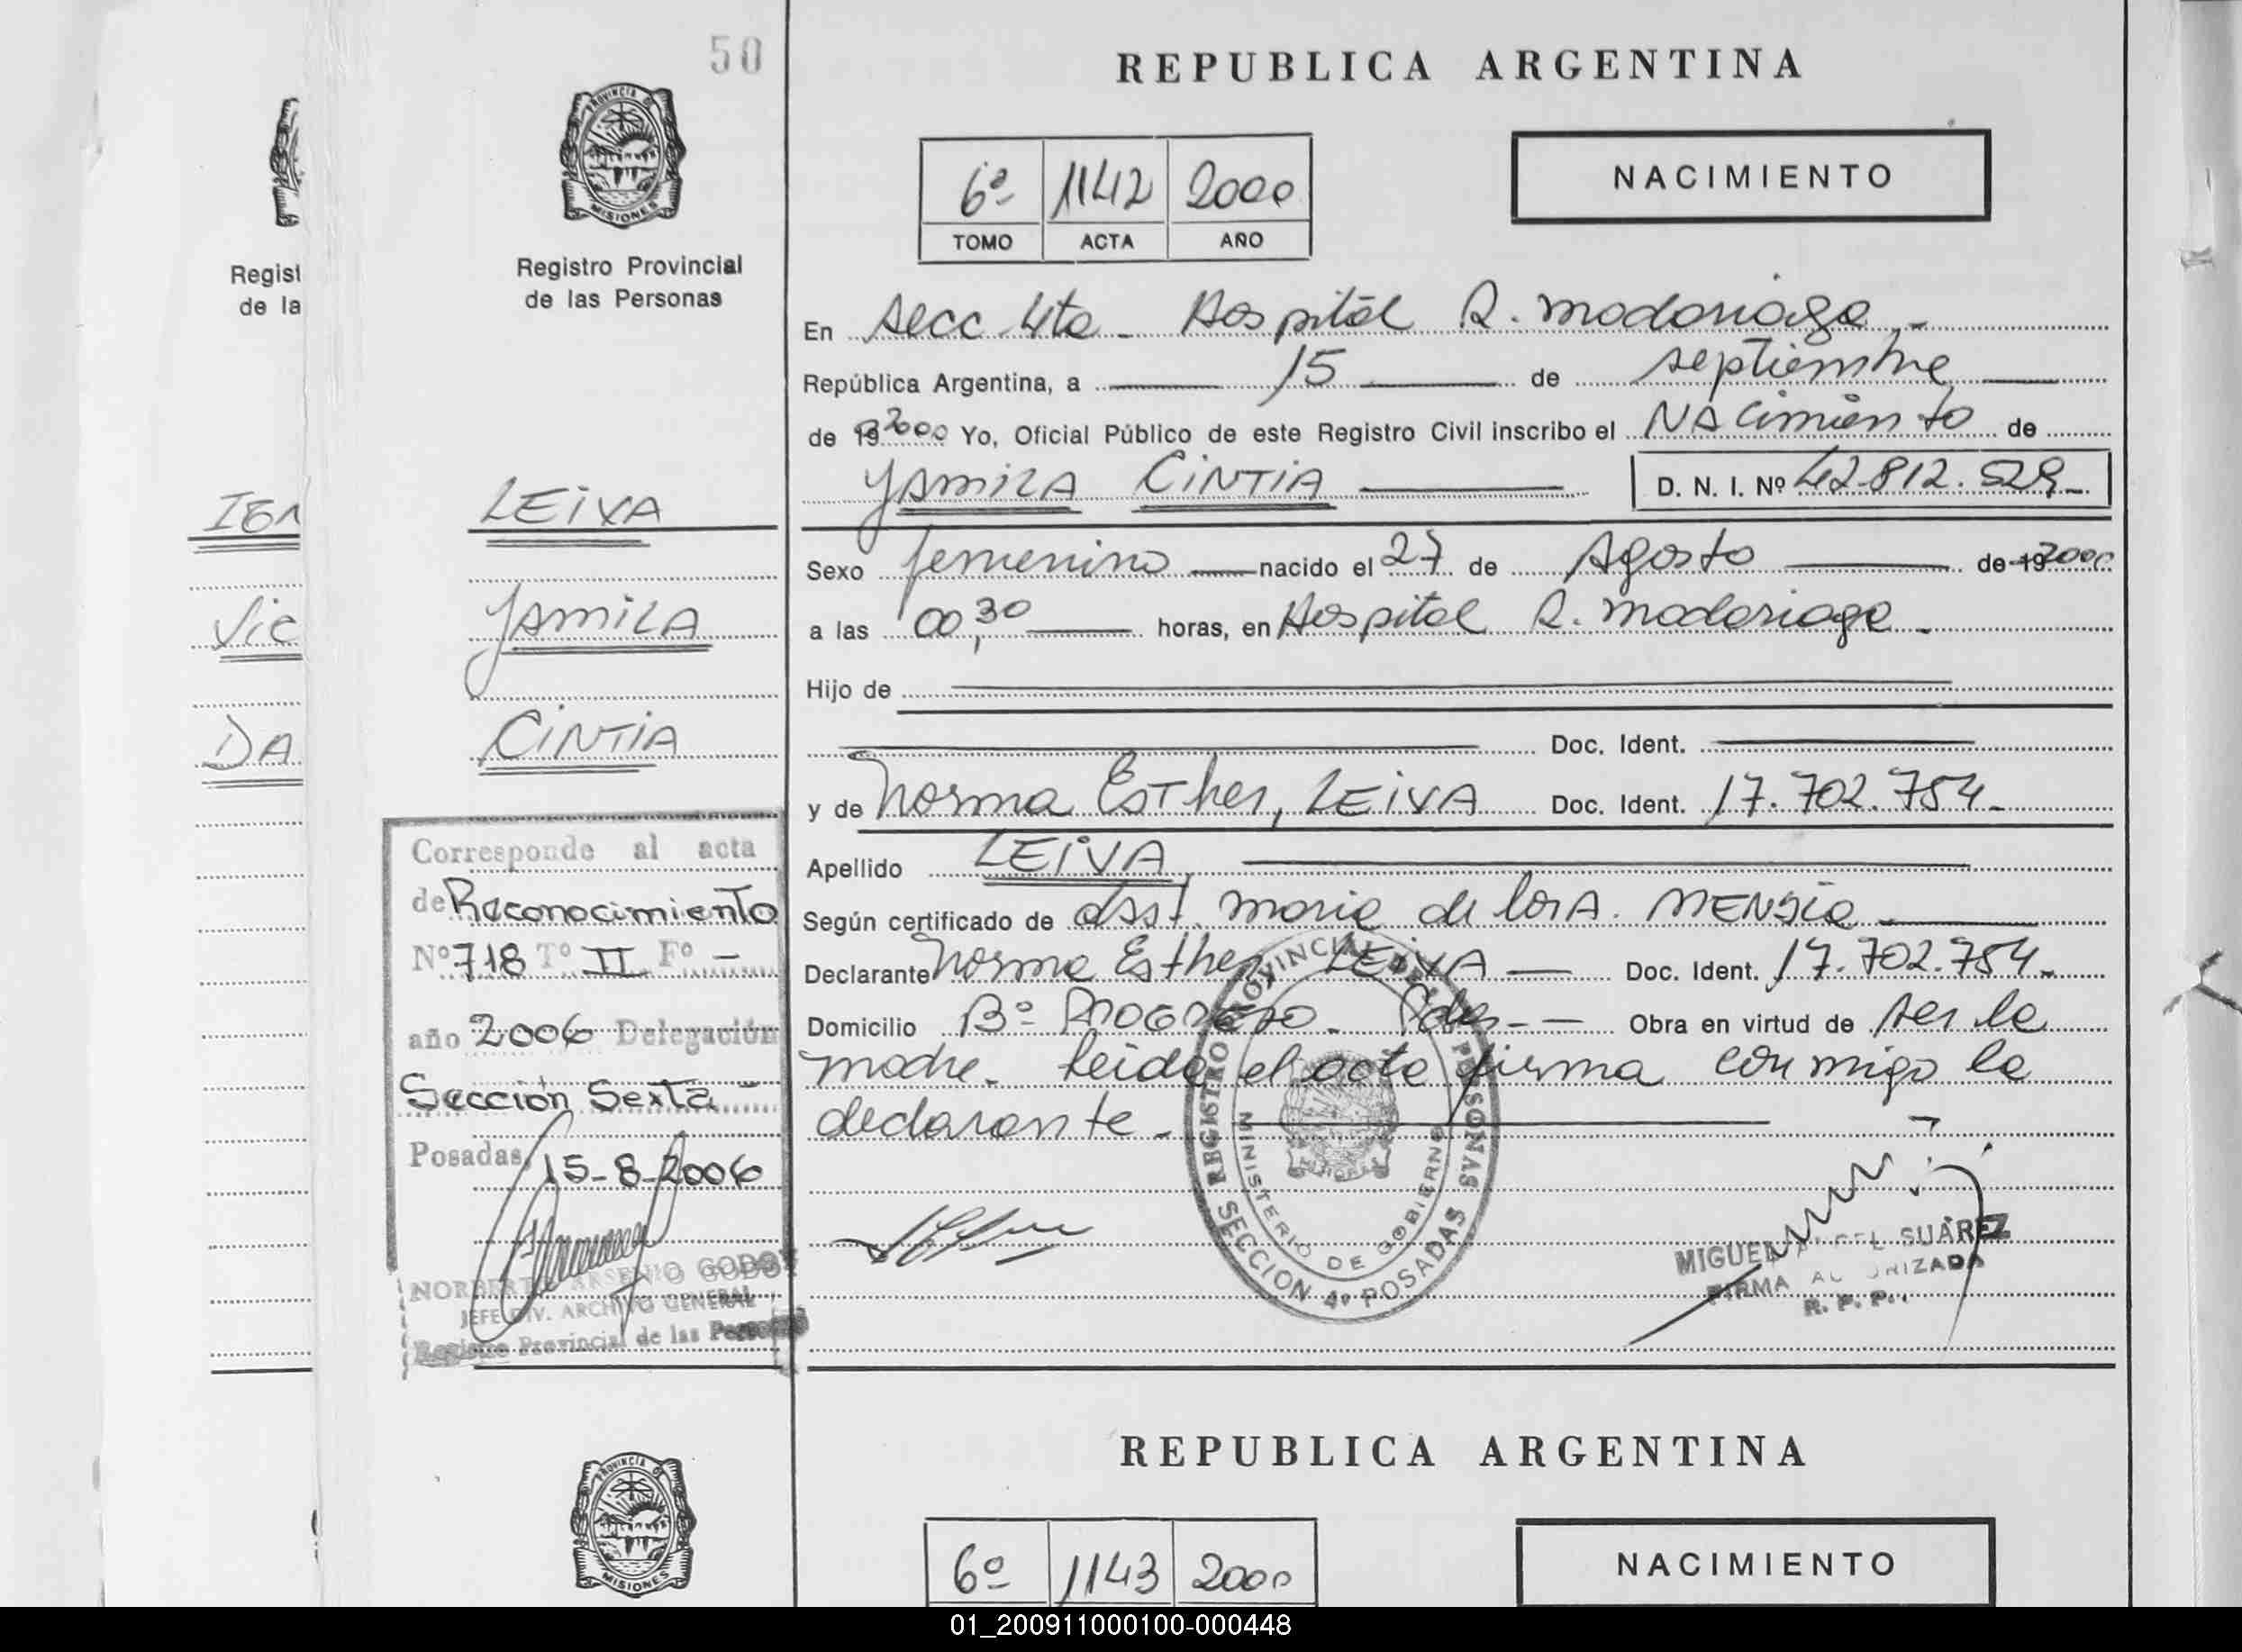 50
REPUBLICA ARGENTINA
PROVINCIA DE
MISIONES
6º 1142 2000
TOMO ACTA AÑO
NACIMIENTO
Regist
de la
Registro Provincial
de las Personas
En Secc 4ta - Hospital R. Madariaga.-
República Argentina, a 15 de septiembre
de 19 2000 Yo, Oficial Público de este Registro Civil inscribo el NAcimiento de
YAMILA CINTIA D. N. I. Nº 42.812.529-
LEIVA
Sexo femenino nacido el 27 de Agosto de 19 2000
YAMILA
a las 00,30 horas, en Hospital R. Madariaga -
Hijo de
CINTIA
Doc. Ident.
y de Norma Esther, LEIVA Doc. Ident. 17.702.754-
Apellido LEIVA
Según certificado de Obst. Maria de los A.
Declarante Norma Esther LEIVA Doc. Ident. 17.702.754-
Domicilio Bº PROGRESO. Pdas- Obra en virtud de ser la
madre. Leida el acta firma conmigo la
declarante -
Vic
DA
Corresponde al acta
de Reconocimiento
Nº 718 Tº II Fº -
año 2006 Delegación
Sección Sexta -
Posadas, 15-8-2006
NORBERTO ARSENIO GODOY
JEFE DIV. ARCHIVO GENERAL
Registro Provincial de las Personas
REGISTRO PROVINCIAL DE LAS PERSONAS
MINISTERIO DE GOBIERNO
SECCION 4º POSADAS
MIGUEL ANGEL SUAREZ
FIRMA AUTORIZADA
R. P. P.
REPUBLICA ARGENTINA
PROVINCIA DE
MISIONES
6º 1143 2000
NACIMIENTO
01_200911000100-000448